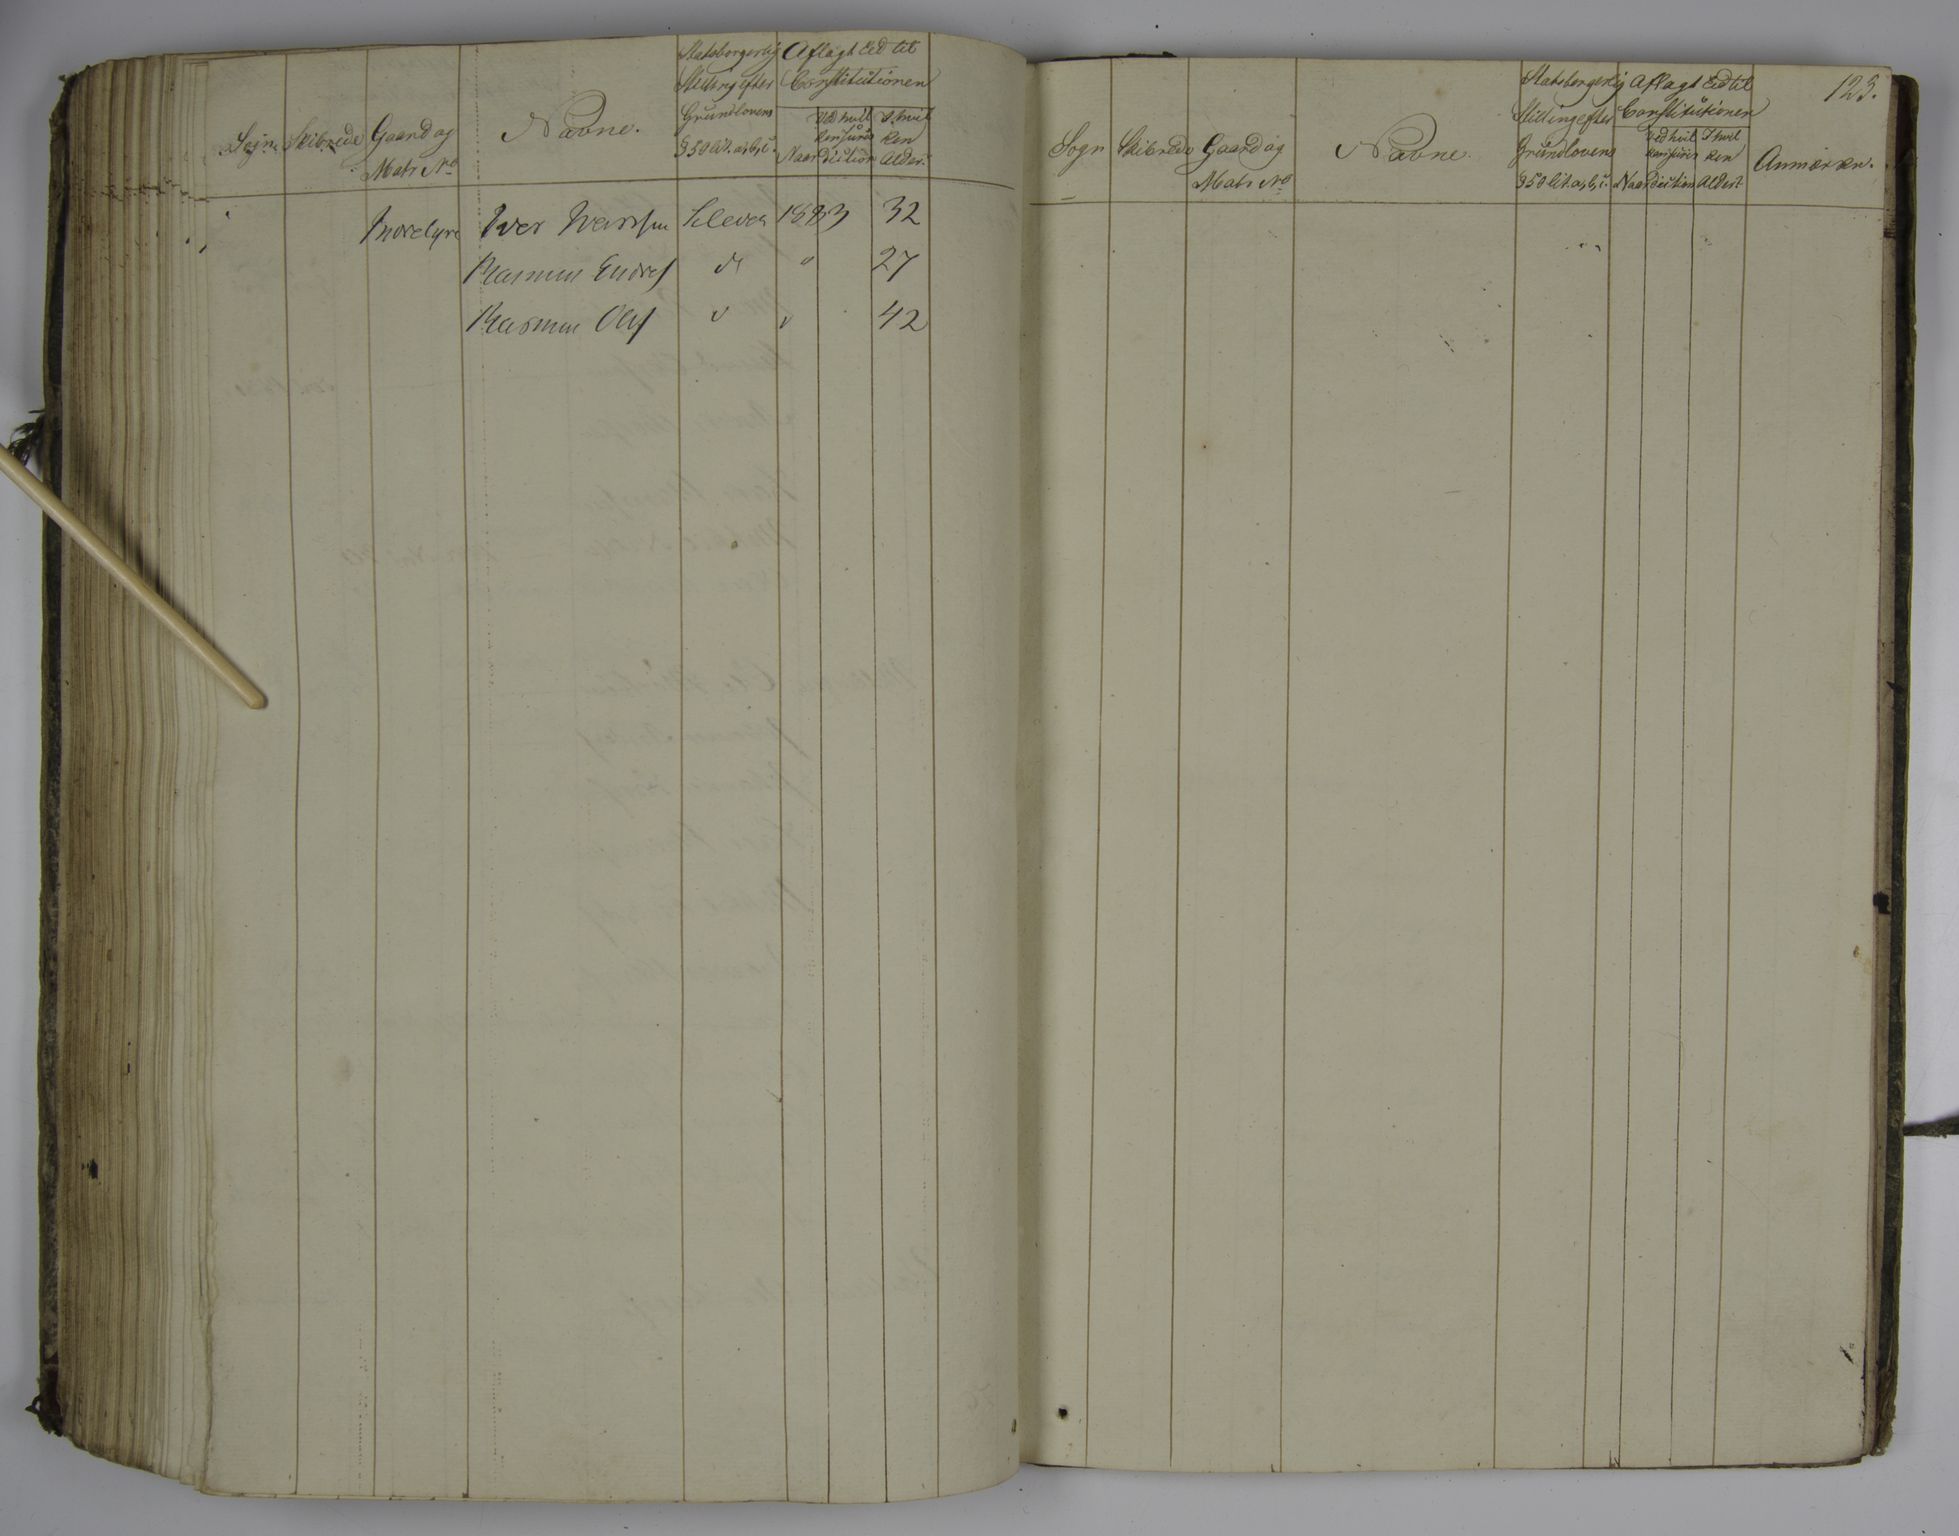 Sogn Skibrede Gaard og Matr No Navne. Statsborgerlig Stilling efter Grundlovens § 50 lit. a, b, c. Aflagt Eed til Constitutionen
Naar Ved hvilken Jurisdiction I hvilken Alder.
Iver Iversen 32
Rasmus Endres " 27
Rasmus Ols 42
123.
Sogn Skibrede Gaard og Matr No Navne Statsborgerlig Stilling efter Grundlovens § 50 lit. a, b, c. Aflagt Eed til Constitutionen
Naar Ved hvilken Jurisdiction I hvilken Alder Anmærkn.